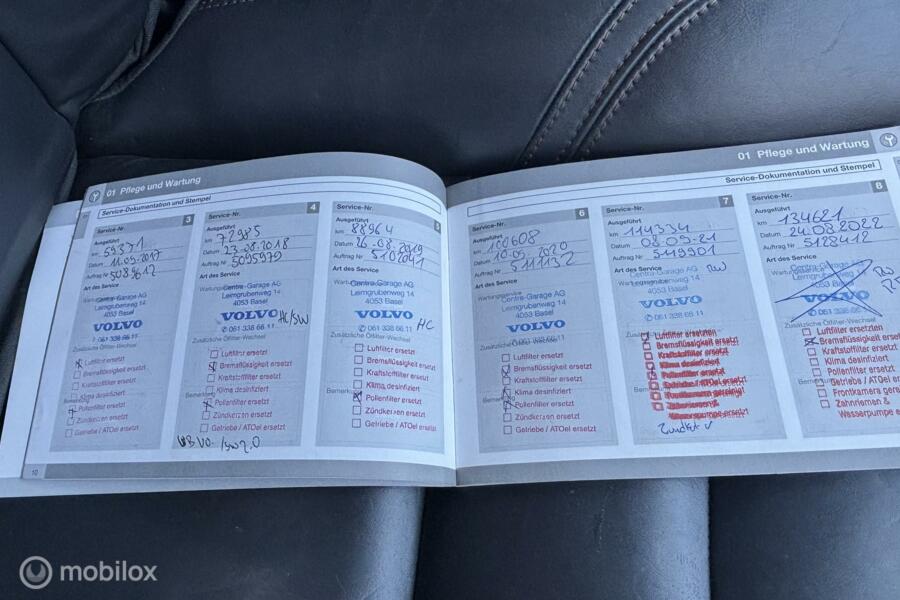 01 Pflege und Wartung
Service-Dokumentation und Stempel
Service-Nr. 3
Ausgeführt
km 59371
Datum 11.09.2017
Auftrag Nr 5089612
Art des Service
Centra-Garage AG
Leimgrubenweg 14
4053 Basel
VOLVO
✆ 061 338 66 11
Zusätzliche Ölfilter-Wechsel
Luftfilter ersetzt
Bremsflüssigkeit ersetzt
Kraftstoffilter ersetzt
Klima desinfiziert
Pollenfilter ersetzt
Zündkerzen ersetzt
Getriebe / ATOel ersetzt
10
Service-Nr. 4
Ausgeführt
km 72985
Datum 23.08.2018
Auftrag Nr 5095979
Art des Service
Centra-Garage AG
Leimgrubenweg 14
4053 Basel
VOLVO
HC/SW
✆ 061 338 66 11
Zusätzliche Ölfilter-Wechsel
Luftfilter ersetzt
Bremsflüssigkeit ersetzt
Kraftstoffilter ersetzt
Klima desinfiziert
Pollenfilter ersetzt
Zündkerzen ersetzt
Getriebe / ATOel ersetzt
Service-Nr. 5
Ausgeführt
km 88964
Datum 26.08.2019
Auftrag Nr 5102041
Art des Service
Centra-Garage AG
Leimgrubenweg 14
4053 Basel
VOLVO
✆ 061 338 66 11 HC
Zusätzliche Ölfilter-Wechsel
Luftfilter ersetzt
Bremsflüssigkeit ersetzt
Kraftstoffilter ersetzt
Klima desinfiziert
Pollenfilter ersetzt
Zündkerzen ersetzt
Getriebe / ATOel ersetzt
01 Pflege und Wartung
Service-Dokumentation und Stempel
Service-Nr. 6
Ausgeführt
km 100608
Datum 10.09.2020
Auftrag Nr 5111132
Art des Service
Centra-Garage AG
Leimgrubenweg 14
4053 Basel
VOLVO
✆ 061 338 66 11
Luftfilter ersetzt
Bremsflüssigkeit ersetzt
Kraftstoffilter ersetzt
Klima desinfiziert
Pollenfilter ersetzt
Zündkerzen ersetzt
Getriebe / ATOel ersetzt
Service-Nr. 7
Ausgeführt
km 114334
Datum 08.09.21
Auftrag Nr 5119901
Art des Service
Centra-Garage AG
Leimgrubenweg 14
4053 Basel
VOLVO
✆ 061 338 66 11
Zusätzliche Ölfilter-Wechsel
Luftfilter ersetzten
Bremsflüssigkeit ersetzt
Kraftstoffilter ersetzt
Klima desinfiziert
Pollenfilter ersetzt
Service-Nr. 8
Ausgeführt
km 134621
Datum 24.08.2022
Auftrag Nr 5128412
Art des Service
Centra-Garage AG
Leimgrubenweg 14
4053 Basel
VOLVO
✆ 061 338 66 11
Zusätzliche Ölfilter-Wechsel
Luftfilter ersetzten
Bremsflüssigkeit ersetzt
Kraftstoffilter ersetzt
Klima desinfiziert
Pollenfilter ersetzt
Getriebe / ATOel
Frontkamera
Zahnriemen
Wasserpumpe
mobilox